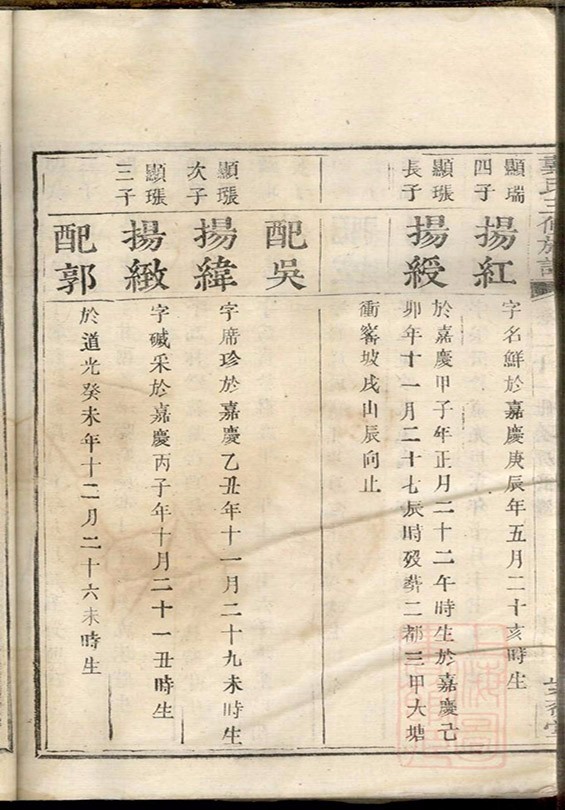 氏三修族譜
顯瑞
四子
揚紅
字名鮮於嘉慶庚辰年五月二十亥時生
顯張
長子
揚綬
於嘉慶甲子年正月二十二午時生於嘉慶己
卯年十一月二十七辰時歿葬二都三甲大塘
衝窰坡戌山辰向止
配吳
顯張
次子
揚緯
字席珍於嘉慶乙丑年十一月二十九未時生
顯張
三子
揚緻
字瑊采於嘉慶丙子年十月二十一丑時生
配郭
於道光癸未年十二月二十六未時生